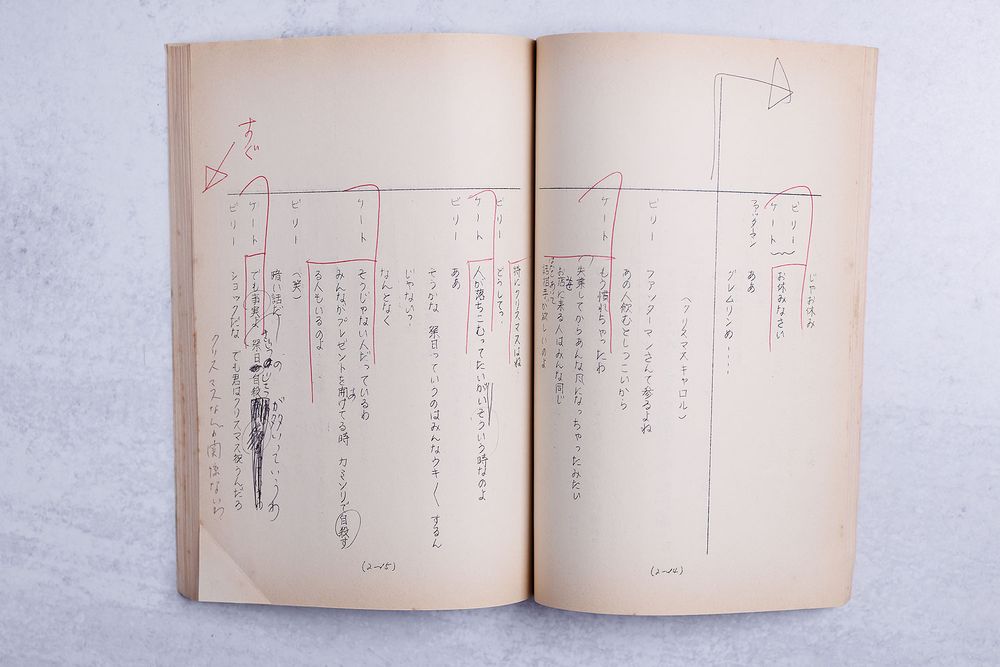 じゃお休み
ビリー お休みなさい
ケート ああ
グレムリンめ……
(クリスマスキャロル)
ビリー ファッターマンさんて参るよね
あの人飲むとしつこいから
ケート もう慣れちゃったわ
失業してからあんな風になっちゃったみたい
お店に来る人はみんな同じ
話相手が欲しいのよ
(2-14)
特にクリスマスはね
ビリー どうして?
ケート 人が落ちこむってたいがいそういう時なのよ
ビリー ああ
そうかな 祭日っていうのはみんなウキ〱するん
じゃない?
なんとなく
ケート そうじゃない人だっているわ
みんながプレゼントを開けてる時 カミソリで自殺す
る人もいるのよ
ビリー (笑)
暗い話だ
ケート でも事実よ 祭日 自殺 の
が多いっていうわ
ビリー ショックだな でも君はクリスマス祝うんだろ
クリスマスなんか関係ないわ
すぐ
(2-15)